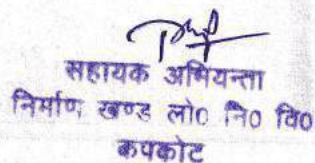 सहायक अभियन्ता
निर्माण खण्ड लो० नि० वि०
कपकोट